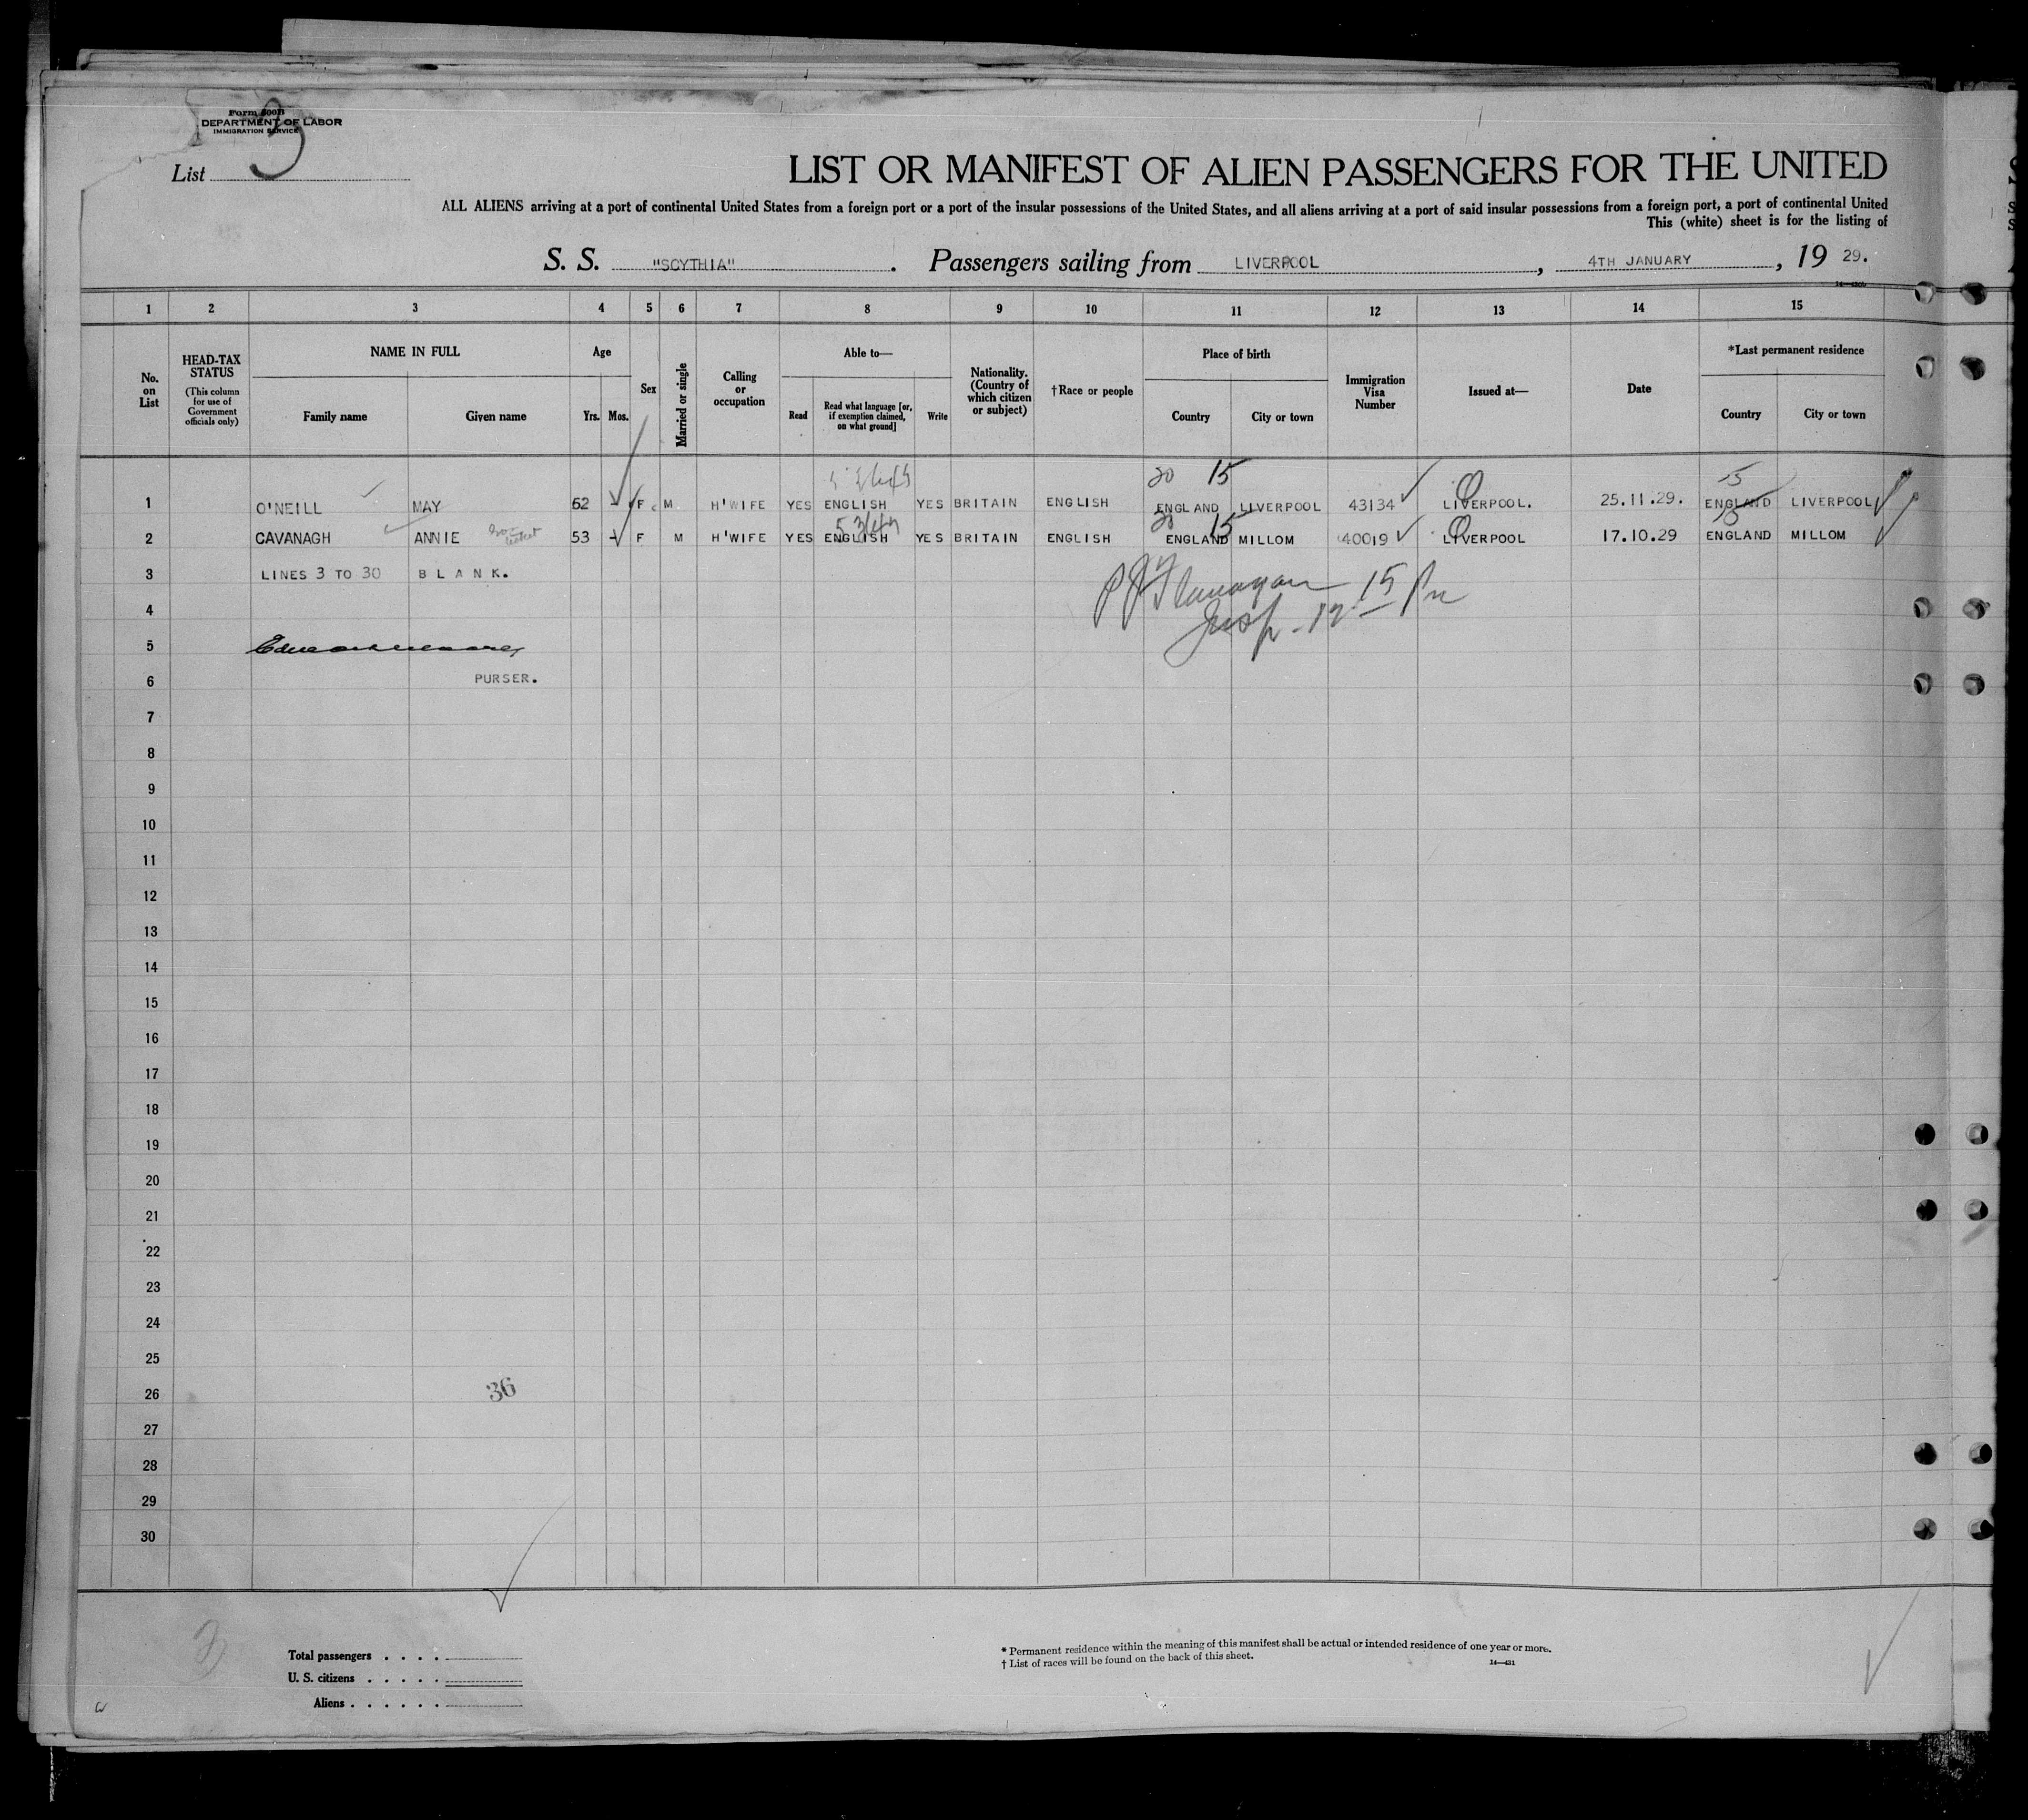 Form 500B
DEPARTMENT OF LABOR
IMMIGRATION SERVICE
List 3
LIST OR MANIFEST OF ALIEN PASSENGERS FOR THE UNITED
ALL ALIENS arriving at a port of continental United States from a foreign port or a port of the insular possessions of the United States, and all aliens arriving at a port of said insular possessions from a foreign port, a port of continental United
This (white) sheet is for the listing of
S. S. "SCYTHIA". Passengers sailing from LIVERPOOL, 4TH JANUARY, 19 29.
1 2 3 4 5 6 7 8 9 10 11 12 13 14 15
No. on List
HEAD-TAX STATUS
(This column for use of Government officials only)
NAME IN FULL
Family name Given name
Age
Yrs. Mos.
Sex
Married or single
Calling or occupation
Able to—
Read
Read what language [or, if exemption claimed, on what ground]
Write
Nationality. (Country of which citizen or subject)
†Race or people
Place of birth
Country City or town
Immigration Visa Number
Issued at—
Date
*Last permanent residence
Country City or town
20 15 15
1 O'NEILL MAY 62 - F M H'WIFE YES ENGLISH YES BRITAIN ENGLISH ENGLAND LIVERPOOL 43134 LIVERPOOL. 25.11.29. ENGLAND LIVERPOOL
20 15 15
2 CAVANAGH ANNIE 53 - F M H'WIFE YES ENGLISH YES BRITAIN ENGLISH ENGLAND MILLOM 40019 LIVERPOOL 17.10.29 ENGLAND MILLOM
3 LINES 3 TO 30 BLANK.
P J Flanagan 15 Pn
4
Insp - 12
5
6 PURSER.
7
8
9
10
11
12
13
14
15
16
17
18
19
20
21
22
23
24
25
26 36
27
28
29
30
3
Total passengers . . . .
U. S. citizens . . . . .
Aliens . . . . . .
* Permanent residence within the meaning of this manifest shall be actual or intended residence of one year or more.
† List of races will be found on the back of this sheet.
14—431